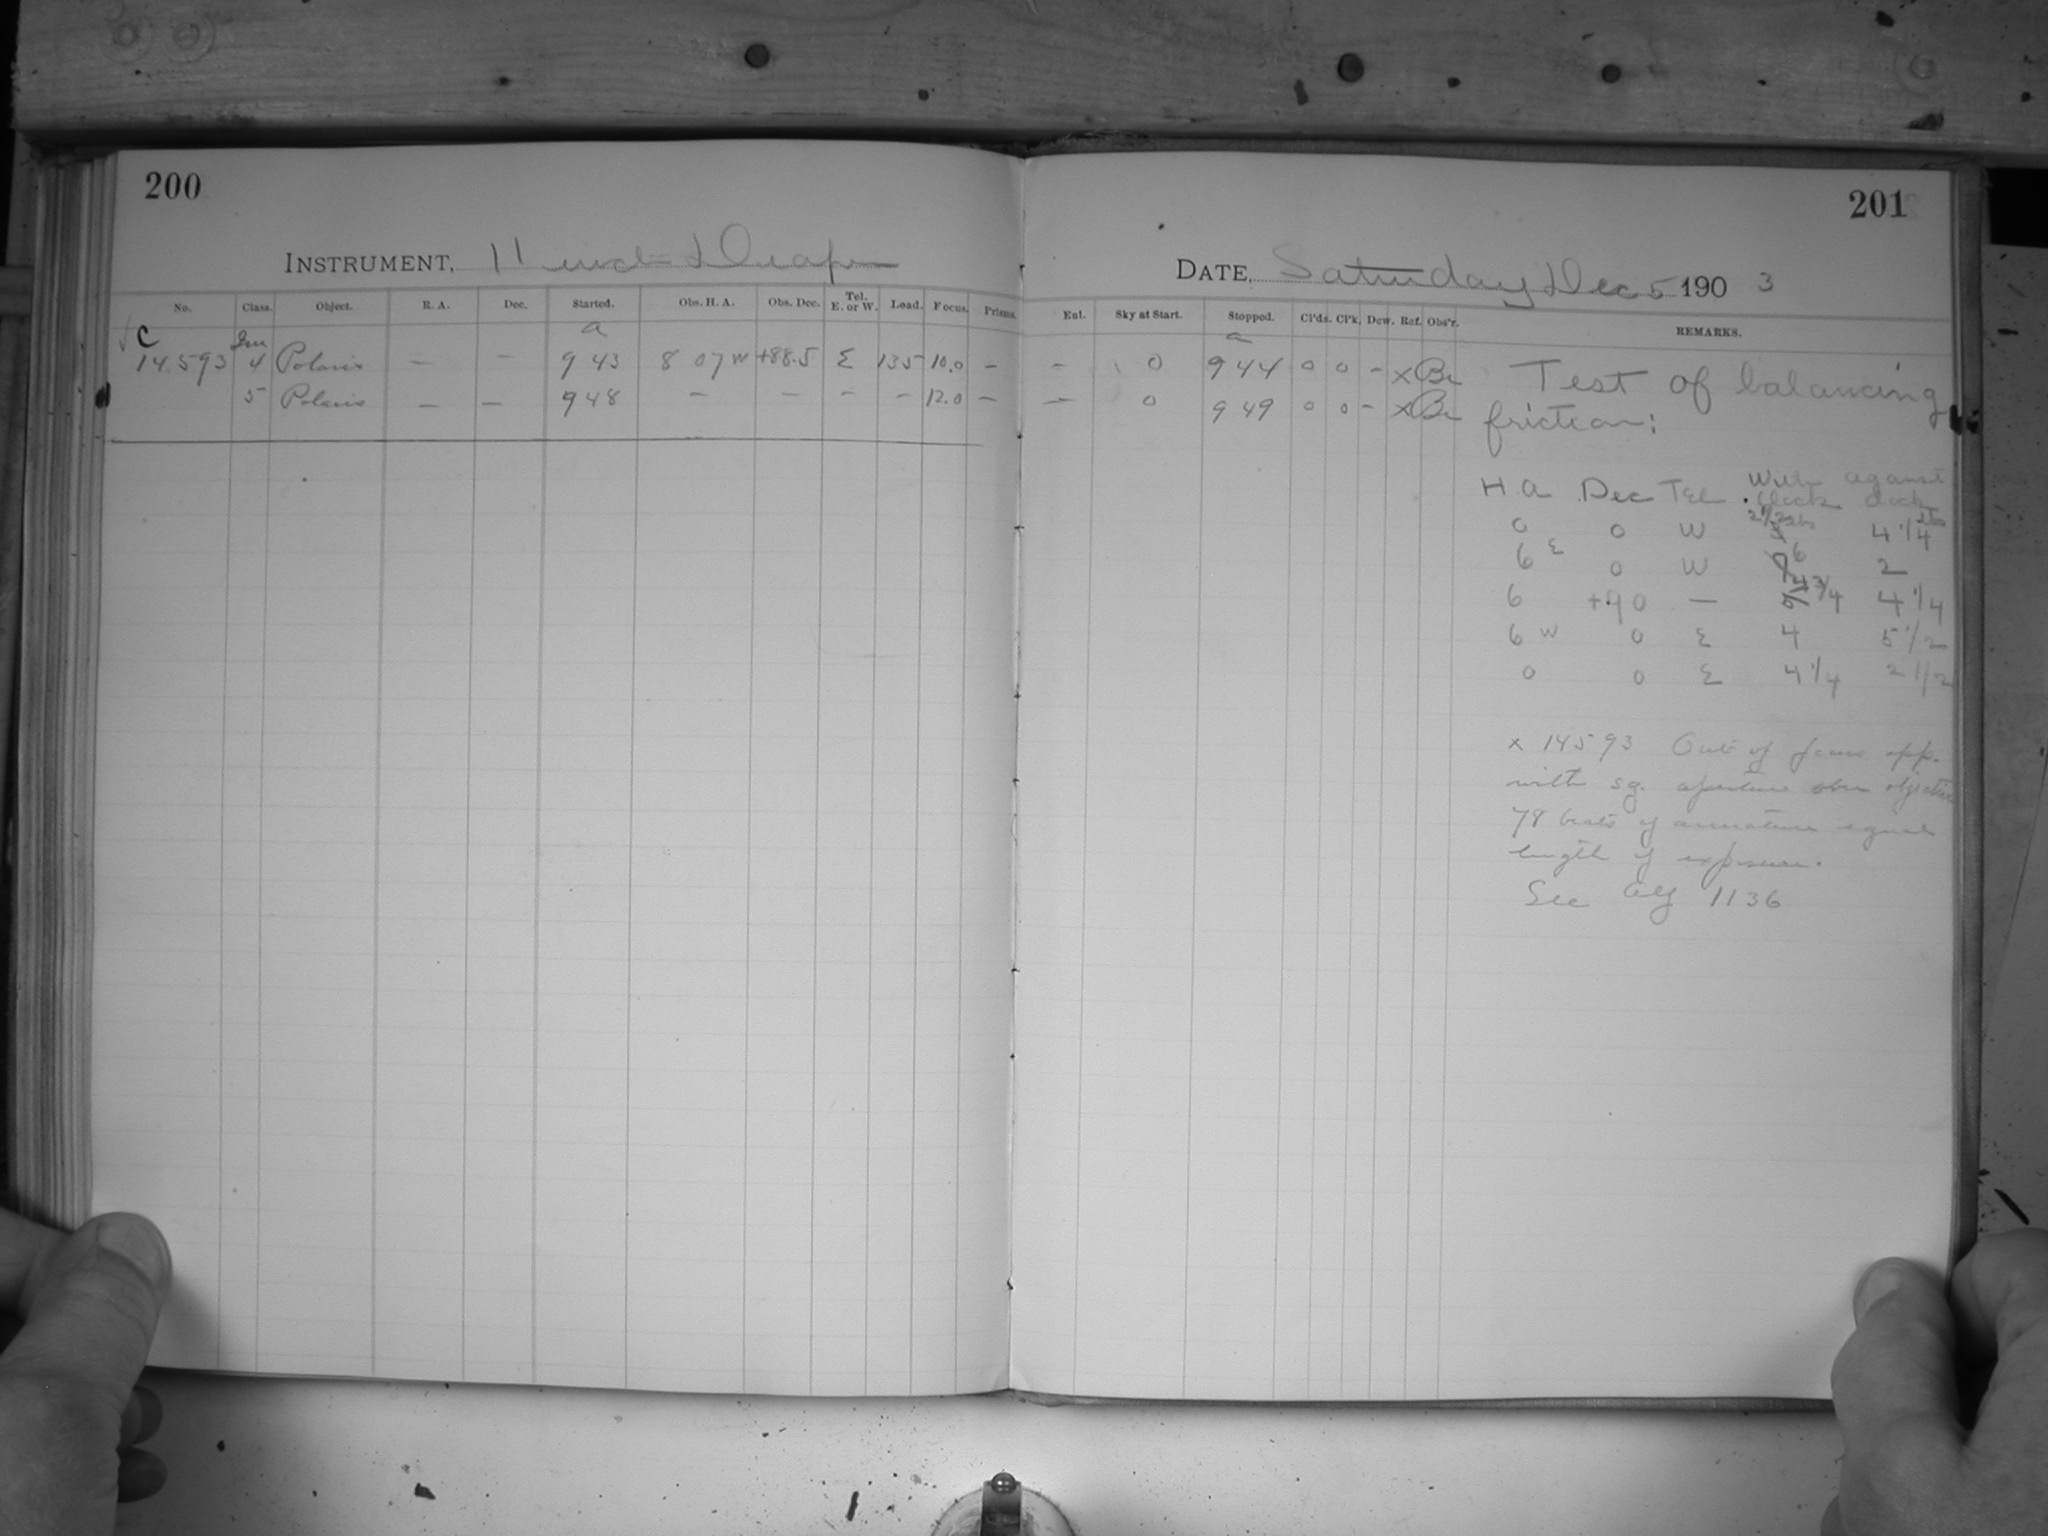 200
INSTRUMENT, 11 inch Draper
No. Class. Object. R. A. Dec. Started. Obs. H. A. Obs. Dec. Tel. E. or W. Load. Focus. Prisms.
C a
14593 4 Polaris — — 9 43 8 07 W +88.5 E 135 10.0 —
5 Polaris — — 9 48 — — — — 12.0 —
201
DATE, Saturday Dec 5 1903
Ent. Sky at Start. Stopped. Cl'ds. Cl'k. Dew. Ref. Obs'r. REMARKS.
a
— 0 9 44 0 0 — x Br Test of balancing
— 0 9 49 0 0 — x Br friction:
H A Dec Tel With clock against clock
0 0 W 2 1/2 lbs 4 1/4 lbs
6 E 0 W 6 2
6 +90 — 4 3/4 4 1/4
6 W 0 E 4 5 1/2
0 0 E 4 1/4 2 1/2
x 14593 Out of focus app.
with sq. aperture over objective
78 beats of armature equal
length of exposure.
See 1136